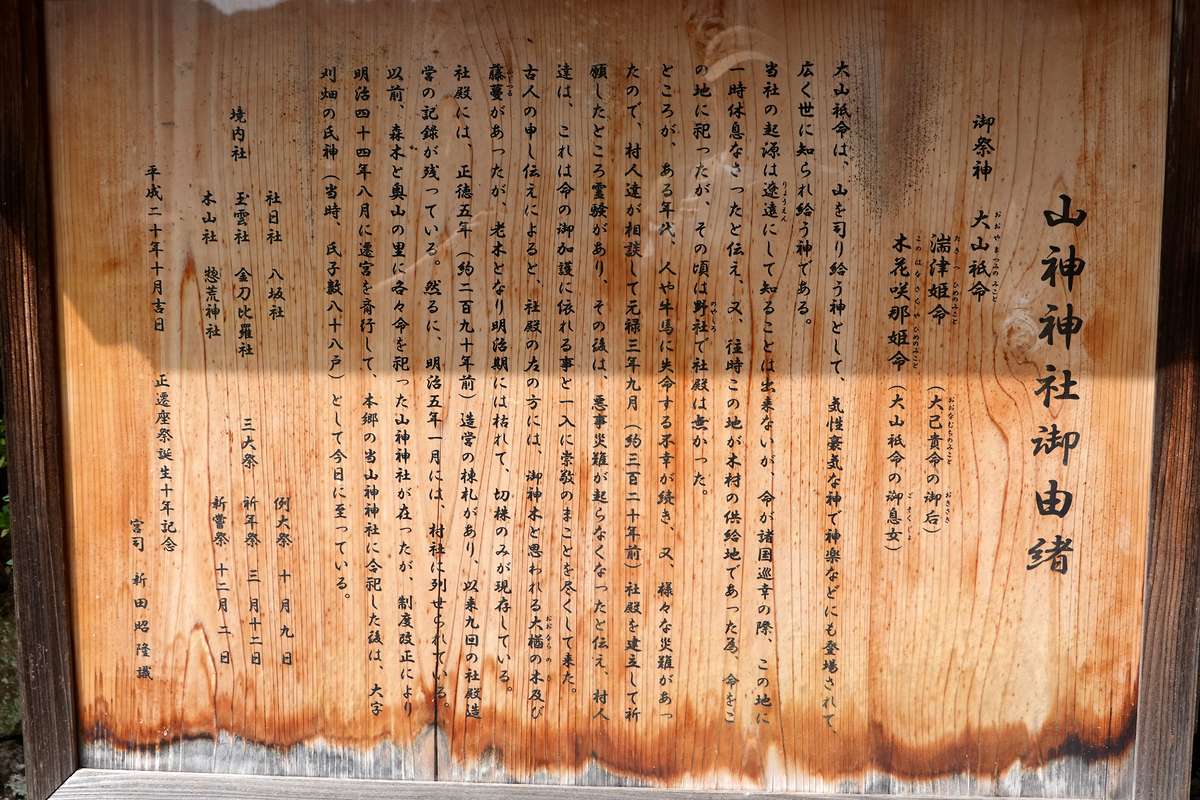 山神神社御由緒
御祭神 大山祇命
湍津姫命（大己貴命の御后）
木花咲那姫命（大山祇命の御息女）
大山祇命は、山を司り給う神として、気性豪気な神で神楽などにも登場されて
広く世に知られ給う神である。
当社の起源は遼遠にして知ることは出来ないが、命が諸国巡幸の際、この地に
一時休息なさったと伝え、又、往時この地が木材の供給地であった為、命をこ
の地に祀ったが、その頃は野社で社殿は無かった。
ところが、ある年代、人や牛馬に失命する不幸が続き、又、様々な災難があっ
たので、村人達が相談して元禄三年九月（約三百二十年前）社殿を建立して祈
願したところ霊験があり、その後は、悪事災難が起らなくなったと伝え、村人
達は、これは命の御加護に依れる事と一入に崇敬のまことを尽くして来た。
古人の申し伝えによると、社殿の左の方には、御神木と思われる大楢の木及び
藤蔓があったが、老木となり明治期には枯れて、切株のみが現存している。
社殿には、正徳五年（約二百九十年前）造営の棟札があり、以来九回の社殿造
営の記録が残っている。然るに、明治五年一月には、村社に列せられている。
以前、森木と奥山の里に各々命を祀った山神神社が在ったが、制度改正により
明治四十四年八月に遷宮を斉行して、本郷の当山神神社に合祀した後は、大字
刈畑の氏神（当時、氏子数八十八戸）として今日に至っている。
境内社 社日社 八坂社
玉雲社 金刀比羅社
木山社 惣荒神社
三大祭 例大祭 十月九日
祈年祭 三月十二日
新嘗祭 十二月二日
平成二十年十月吉日 正遷座祭誕生十年記念
宮司 新田昭隆識